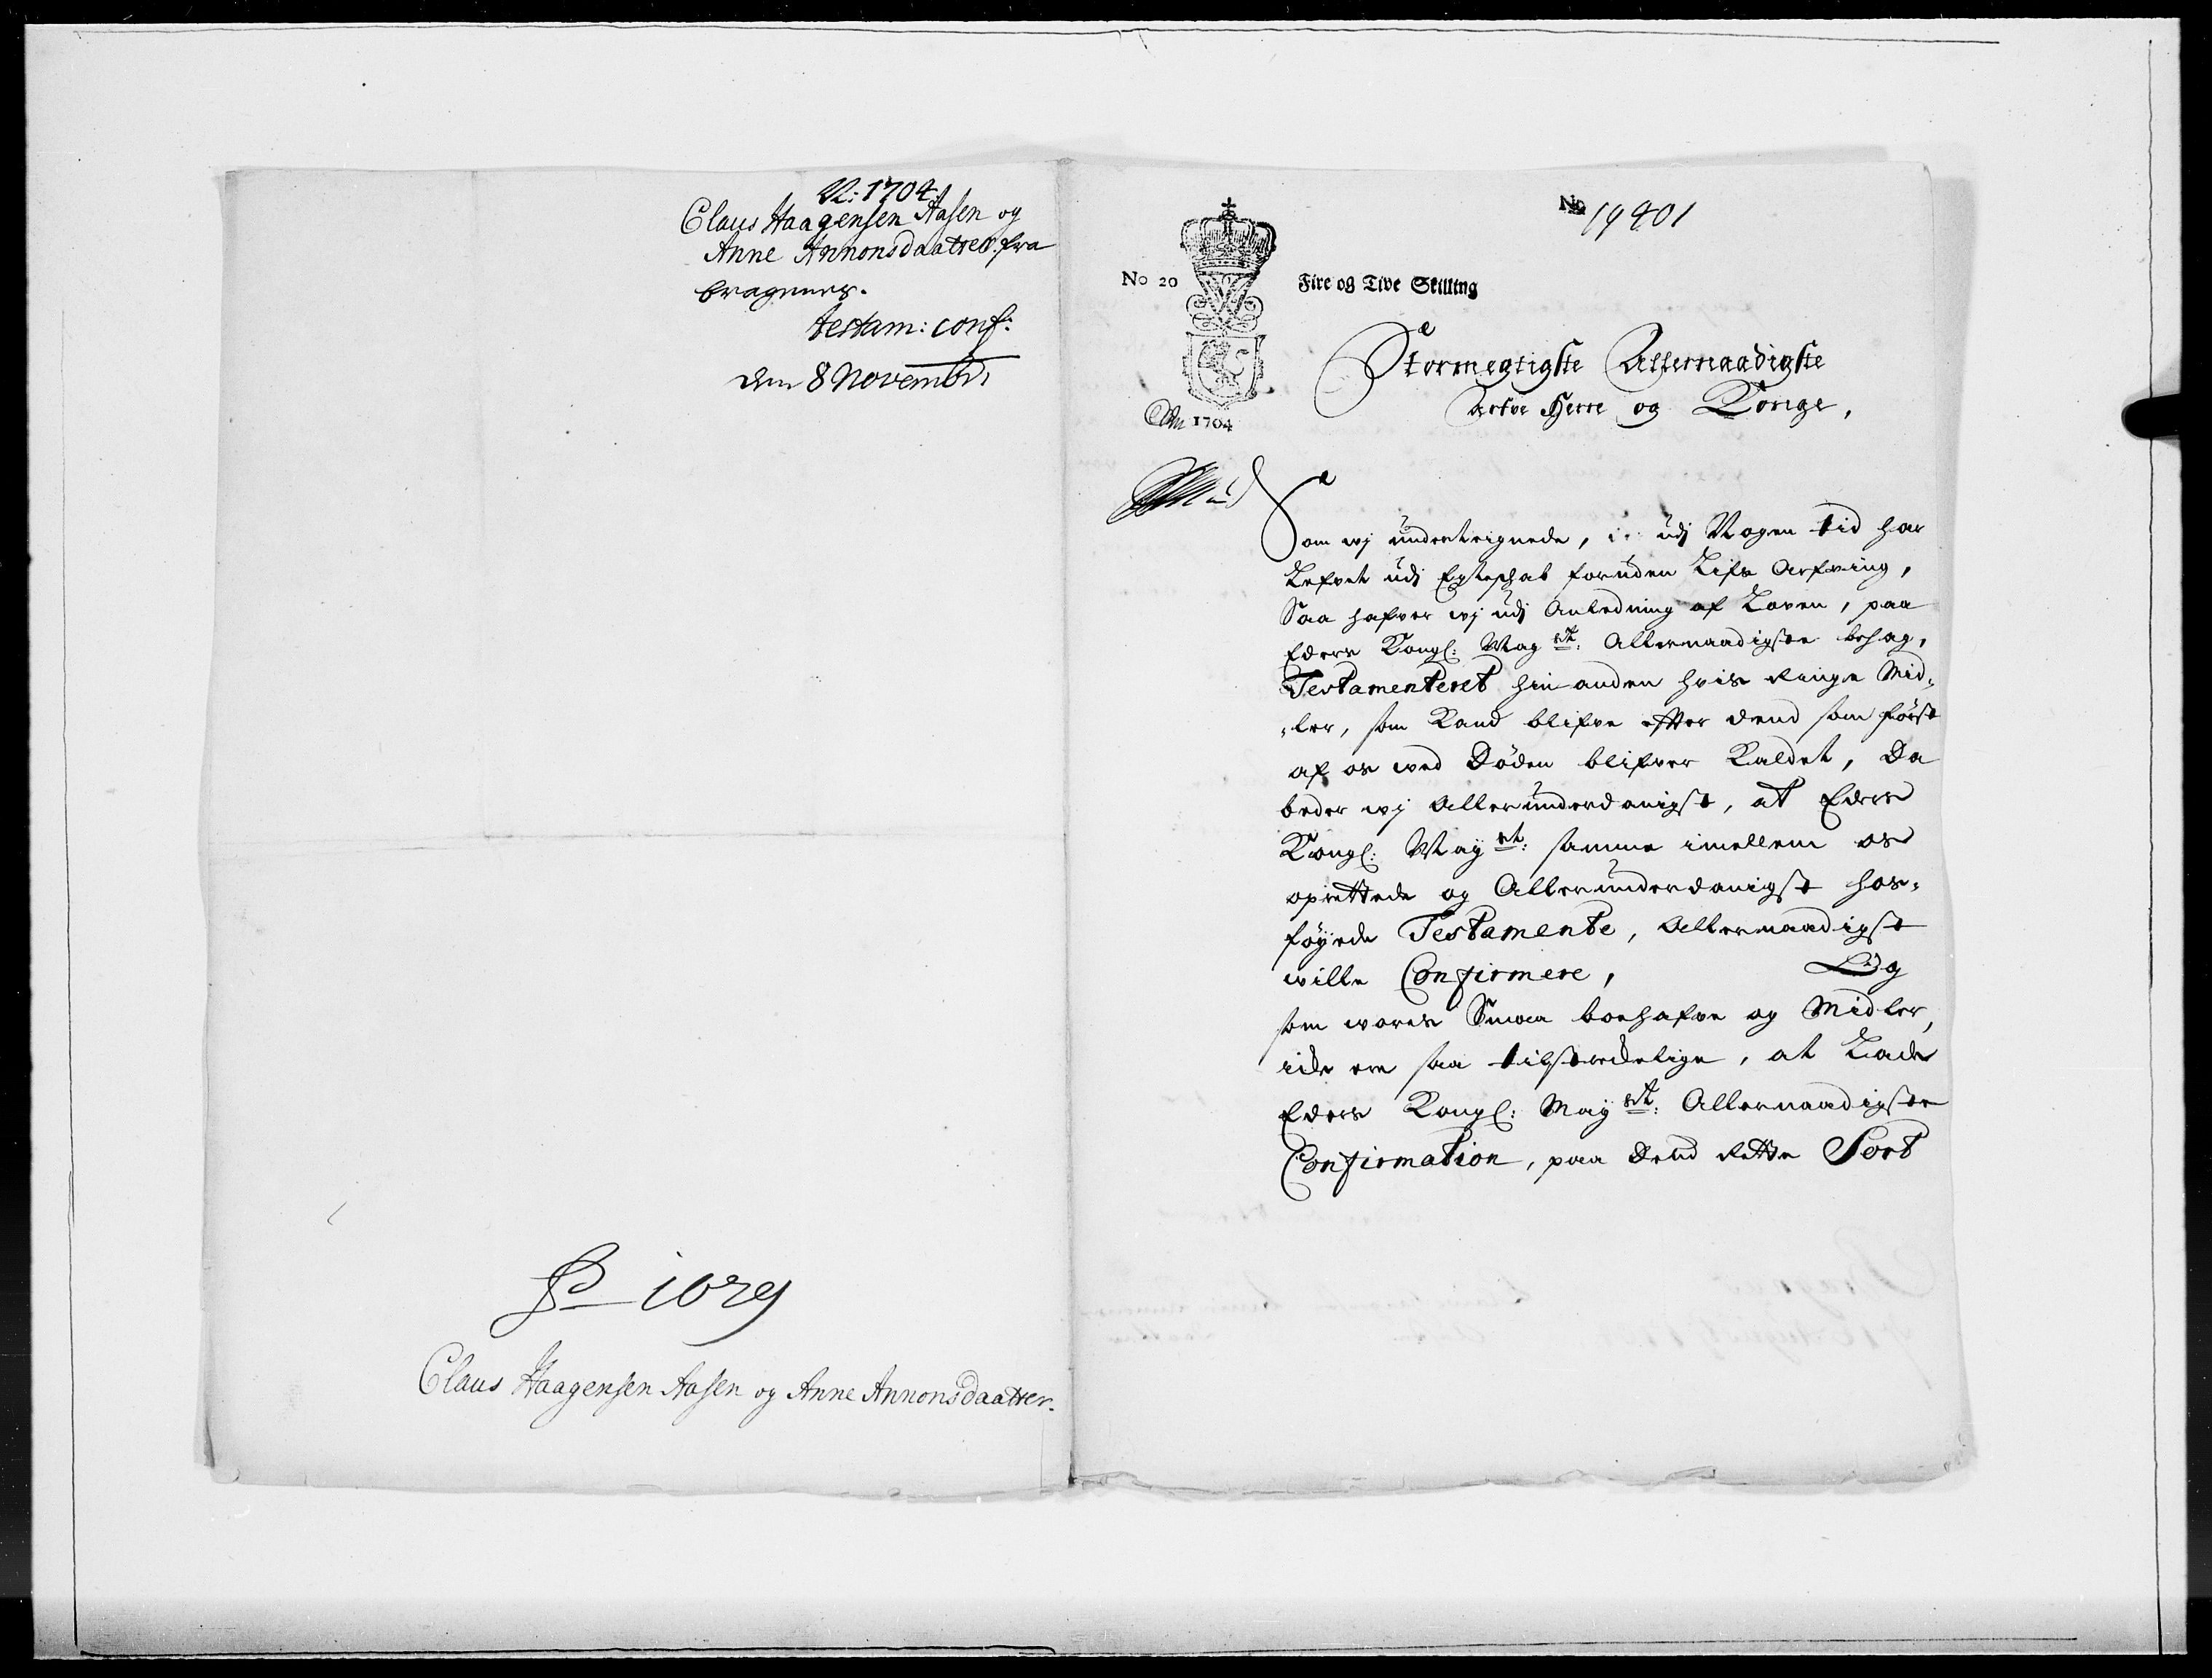 R: 1704.
Claus Haagensen Aasen og
Anne Annonsdaatter fra
bragenes.
testam: conf:
den 8 Novembr:
P 1029
Claus Haagensen Aasen og Anne Annonsdaatter.
No 19401
No 20
Fire og Tive Skilling
Ao 1704
Stormegtigste Allernaadigste
Arfve Herre og Konge,
Som wj underteignede, udj Nogen tid har
Lefvet udj Egteschab foruden Lifs Arfving,
Saa hafver wj udj Anledning af Loven, paa
Eders Kongl: Mayst: Allernaadigste behag,
Testamenteret hin anden hvis ringe Mid„
„ler, som Kand blifve efter dend som først
af os wed Døden blifver Kaldet, Da
beder wj Allerunderdanigst, at Eders
Kongl: Mayst: samme imellem os
oprettede og Allerunderdanigst hos„
føyede Testamente, Allernaadigst
wille Confirmere, Og
som wores Smaa boehafve og Midler,
icke ere saa tilstredelige, at Lade
Eders Kongl: Mayst: Allernaadigste
Confirmation, paa dend rette Sort